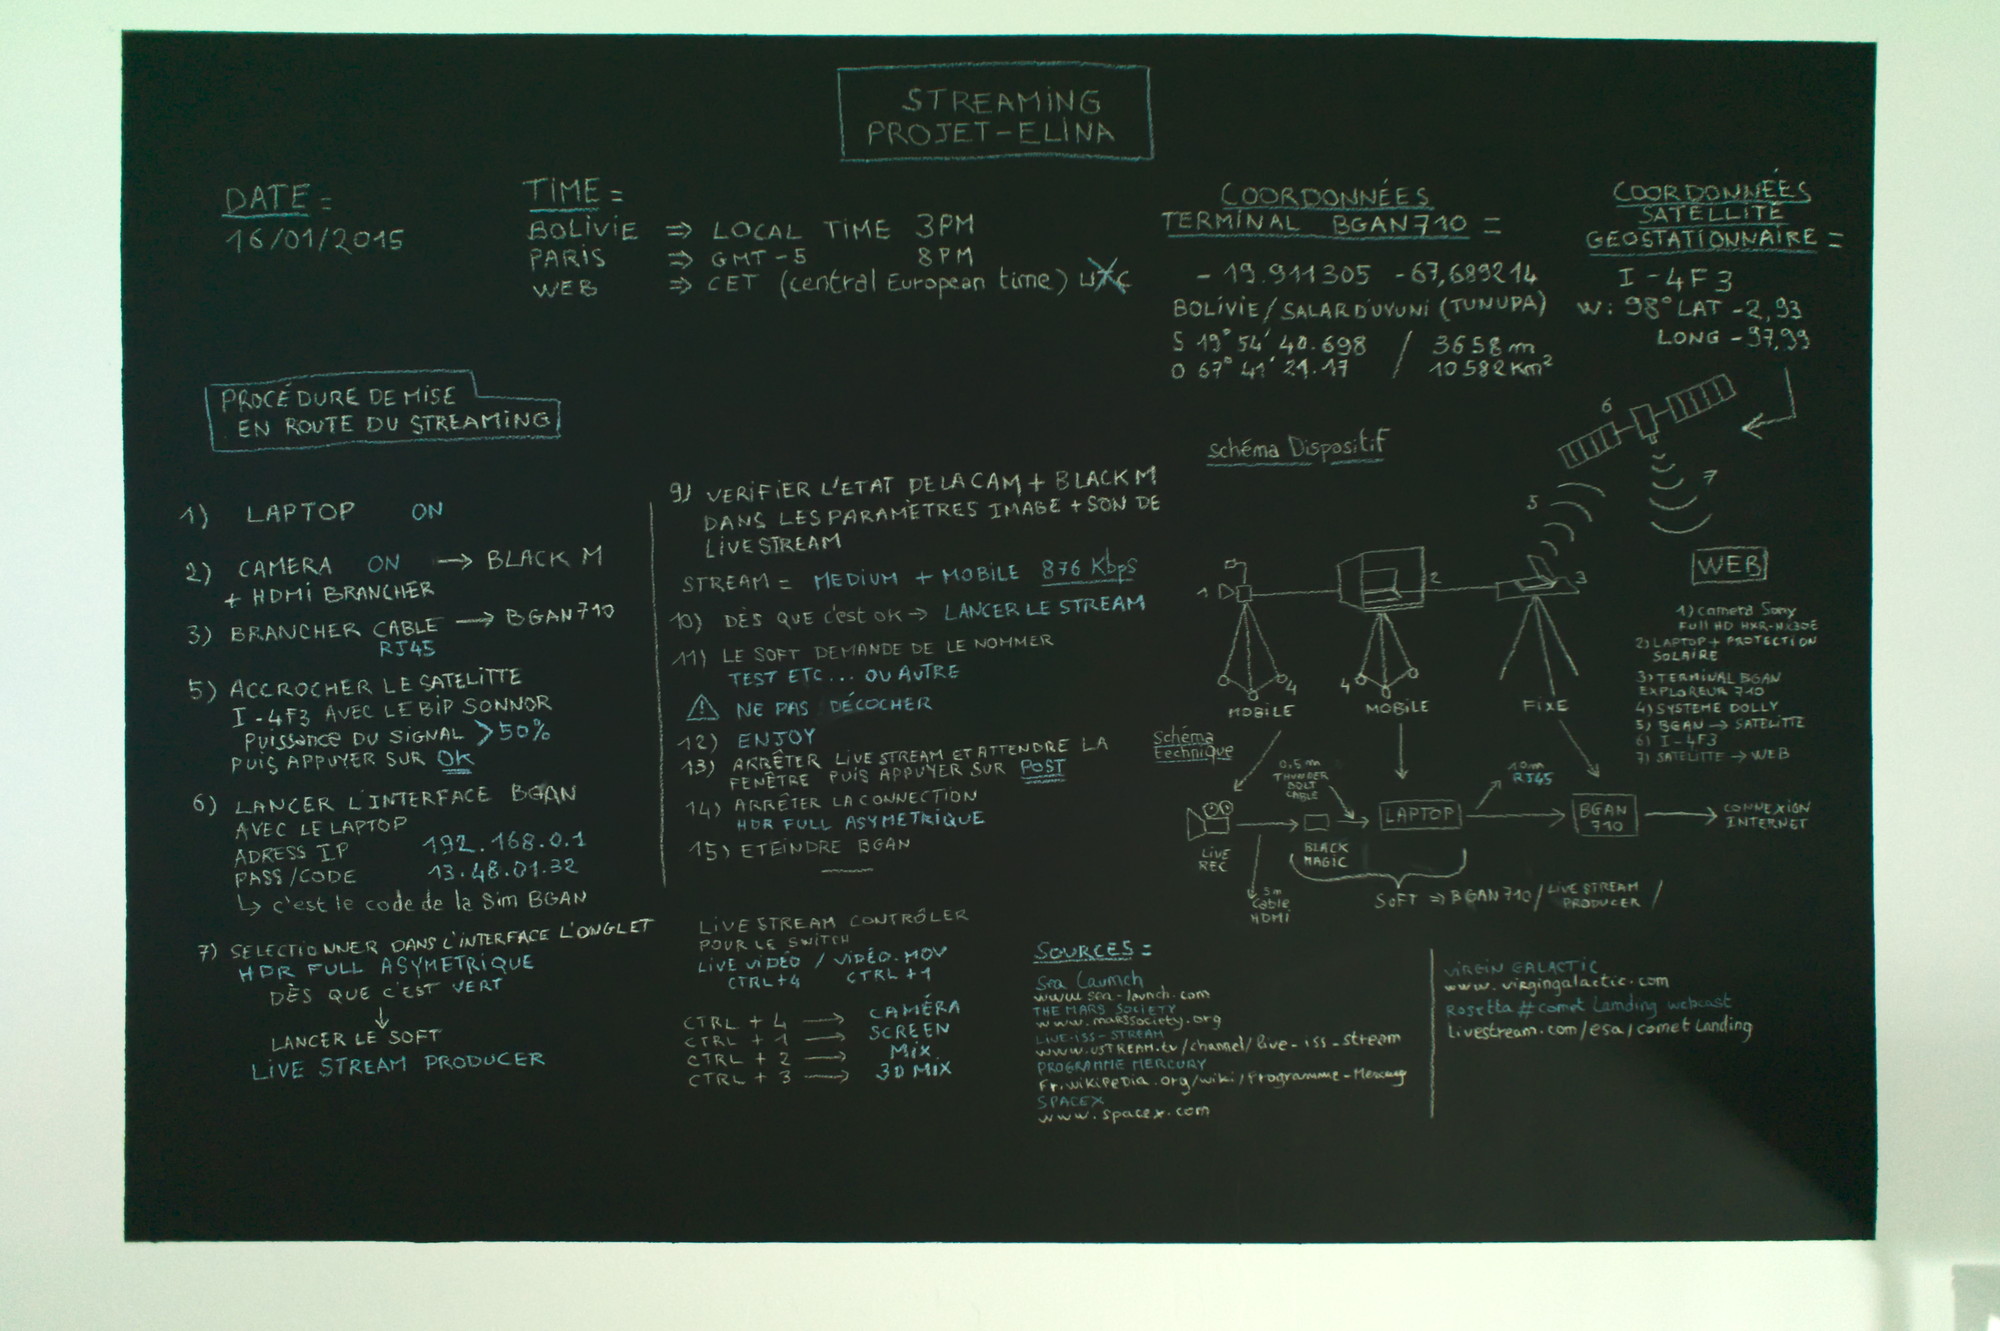 STREAMING
PROJET-ELINA
DATE =
16/01/2015
TIME =
BOLIVIE ⇒ LOCAL TIME 3PM
PARIS ⇒ GMT-5 8PM
WEB ⇒ CET (central European time)
COORDONNÉES
TERMINAL BGAN710 =
-19.911305 -67,689214
BOLIVIE/SALARD'UYUNI (TUNUPA)
S 19° 54' 40.698 / 3658m
O 67° 41' 21.17 / 10582Km²
COORDONNÉES
SATÉLLITÉ
GEOSTATIONNAIRE =
I-4F3
W: 98° LAT -2,93
LONG -97,99
PROCÉDURE DE MISE
EN ROUTE DU STREAMING
1) LAPTOP ON
2) CAMERA ON → BLACK M
+ HDMI BRANCHER
3) BRANCHER CABLE → BGAN710
RJ45
5) ACCROCHER LE SATELITTE
I-4F3 AVEC LE BIP SONNOR
PUISSANCE DU SIGNAL >50%
PUIS APPUYER SUR OK
6) LANCER L'INTERFACE BGAN
AVEC LE LAPTOP
ADRESS IP 192.168.0.1
PASS/CODE 13.48.01.32
↳ c'est le code de la Sim BGAN
7) SELECTIONNER DANS L'INTERFACE L'ONGLET
HDR FULL ASYMETRIQUE
DÈS QUE C'EST VERT
↓
LANCER LE SOFT
LIVE STREAM PRODUCER
9) VERIFIER L'ETAT DE LA CAM + BLACK M
DANS LES PARAMÈTRES IMAGE + SON DE
LIVESTREAM
STREAM = MEDIUM + MOBILE 876 Kbps
10) DÈS QUE c'est ok → LANCER LE STREAM
11) LE SOFT DEMANDE DE LE NOMMER
TEST ETC... OU AUTRE
⚠ NE PAS DÉCOCHER
12) ENJOY
13) ARRÊTER LIVE STREAM ET ATTENDRE LA
FENÊTRE PUIS APPUYER SUR POST
14) ARRÊTER LA CONNECTION
HDR FULL ASYMETRIQUE
15) ETEINDRE BGAN
LIVE STREAM CONTRÔLER
POUR LE SWITCH
LIVE VIDÉO / VIDÉO.MOV
CTRL+4 CTRL+1
CTRL + 4 → CAMÉRA
CTRL + 1 → SCREEN
CTRL + 2 → MIX
CTRL + 3 → 3D MIX
Schéma Dispositif
6
7
5
1
2
3
4
4
MOBILE
MOBILE
FIXE
WEB
1) camera Sony
Full HD HXR-NX30E
2) LAPTOP + PROTECTION
SOLAIRE
3) TERMINAL BGAN
EXPLOREUR 710
4) SYSTEME DOLLY
5) BGAN → SATELITTE
6) I-4F3
7) SATELITTE → WEB
Schéma
technique
0,5m
THUNDER
BOLT
CABLE
10m
RJ45
LAPTOP
BGAN
710
CONNEXION
INTERNET
LIVE
REC
BLACK
MAGIC
5m
Cable
HDMI
SOFT ⇒ BGAN710 / LIVE STREAM
PRODUCER /
SOURCES =
Sea Launch
www.sea-launch.com
THE MARS SOCIETY
www.marssociety.org
LIVE-ISS-STREAM
www.USTREAM.tv/channel/live-iss-stream
PROGRAMME MERCURY
Fr.wikipedia.org/wiki/Programme-Mercury
SPACEX
www.spacex.com
VIRGIN GALACTIC
www.virgingalactic.com
Rosetta #comet Landing webcast
livestream.com/esa/cometLanding